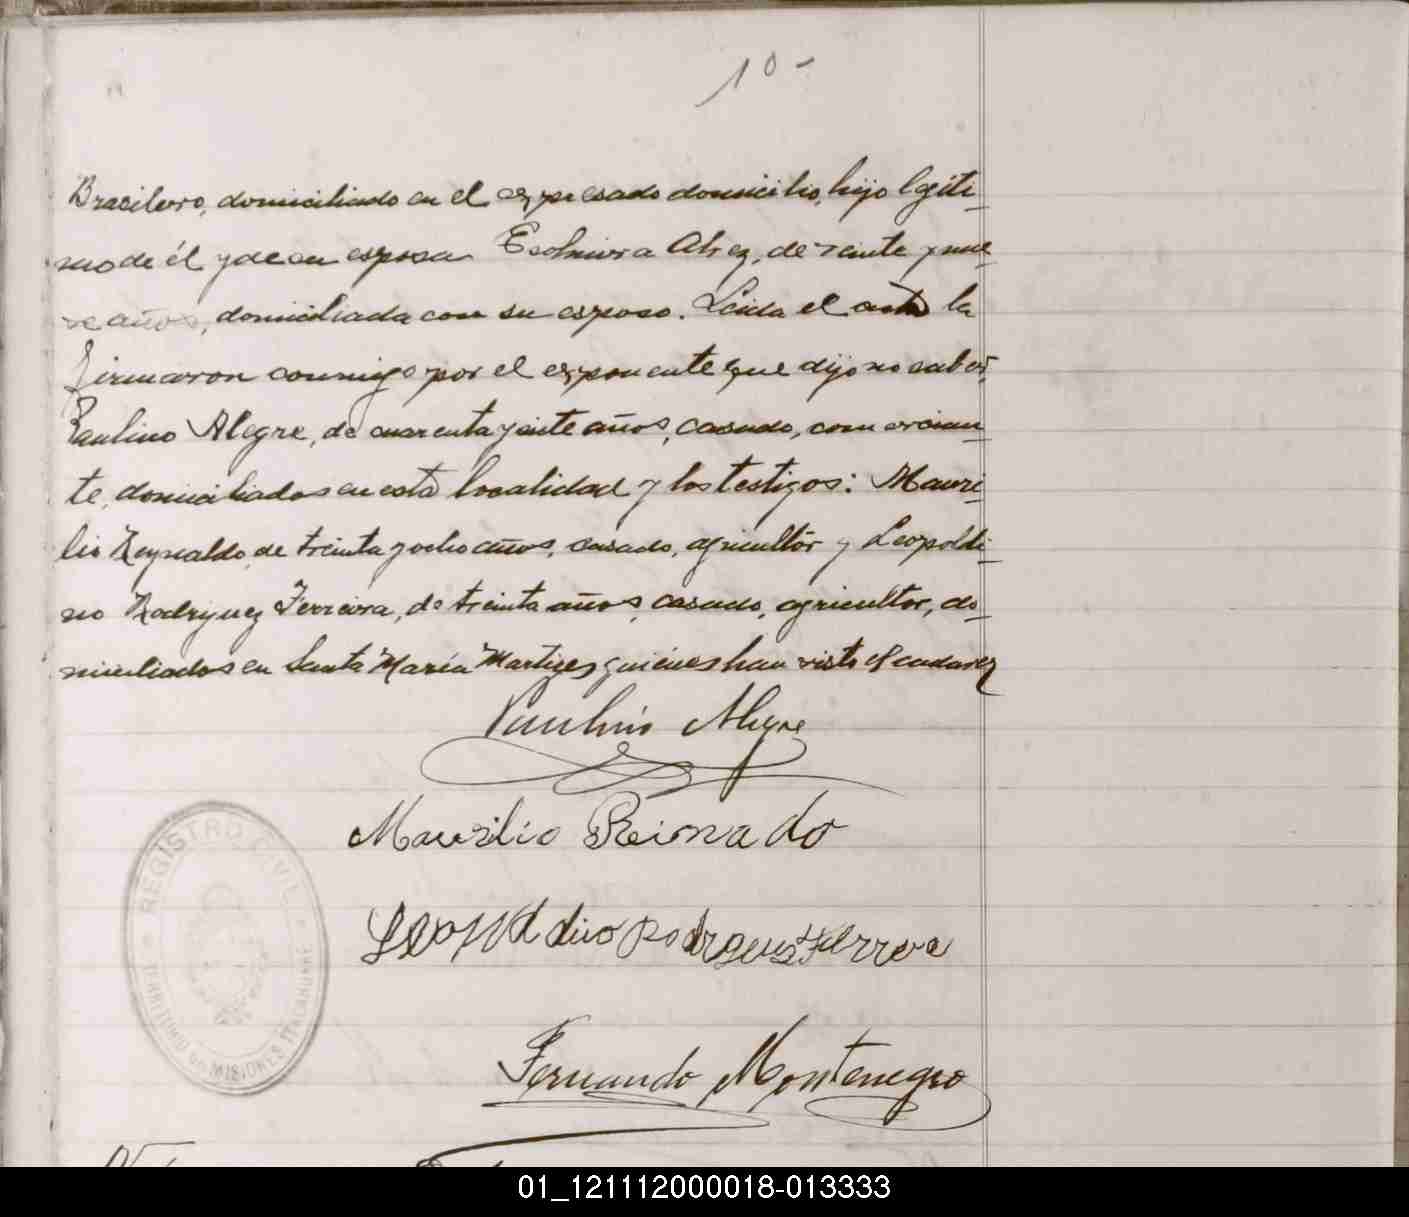 10-
Brasilero, domiciliado en el expresado domicilio, hijo legiti-
mo de él y de su esposa Alvez, de veinte y nue-
ve años, domiciliada con su esposo. Leida el acta la
firmaron conmigo por el exponente que dijo no saber,
Paulino Alegre, de cuarenta y siete años, casado, comercian-
te, domiciliados en esta localidad y los testigos: Mauri-
lio Reynaldo, de treinta y ocho años, casado, agricultor y Leopoldi-
no Rodryguez Ferreira, de treinta años, casado, agricultor, do-
miciliados en Santa María Martires, quiénes han visto el cadavez
Paulino Alegre
Maurilio Reinado
Leopoldino Rodrgeus Ferrera
Fernando Montenegro
REGISTRO CIVIL
TERRITORIO DE MISIONES ITACARUARE
01_121112000018-013333